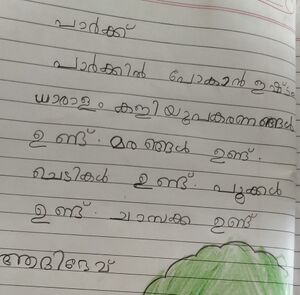 പാർക്ക്
പാർക്കിൻ പോകാൻ ഇഷ്ടം
ധാരാളം കളിയുപകരണങ്ങൾ
ഉണ്ട്. മരങ്ങൾ ഉണ്ട്.
ചെടികൾ ഉണ്ട്. പൂക്കൾ
ഉണ്ട്. ചാമ്പക്ക ഉണ്ട്
ആദിദേവ്